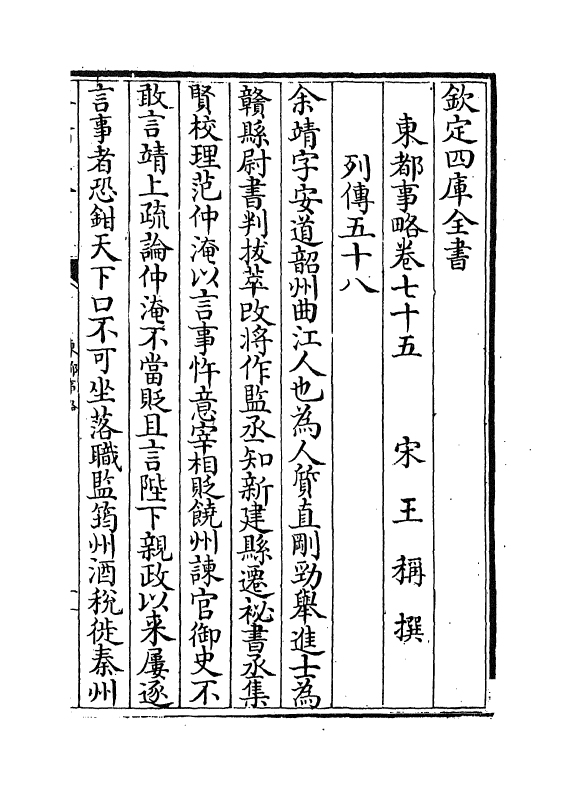 欽定四庫全書
東都事略卷七十五　宋　王　稱　撰
列傳五十八
余靖字安道韶州曲江人也為人質直剛勁舉進士為
贛縣尉書判拔萃改將作監丞知新建縣遷祕書丞集
賢校理范仲淹以言事忤意宰相貶饒州諫官御史不
敢言靖上疏論仲淹不當貶且言陛下親政以来屢逐
言事者恐鉗天下口不可坐落職監筠州酒稅徙泰州